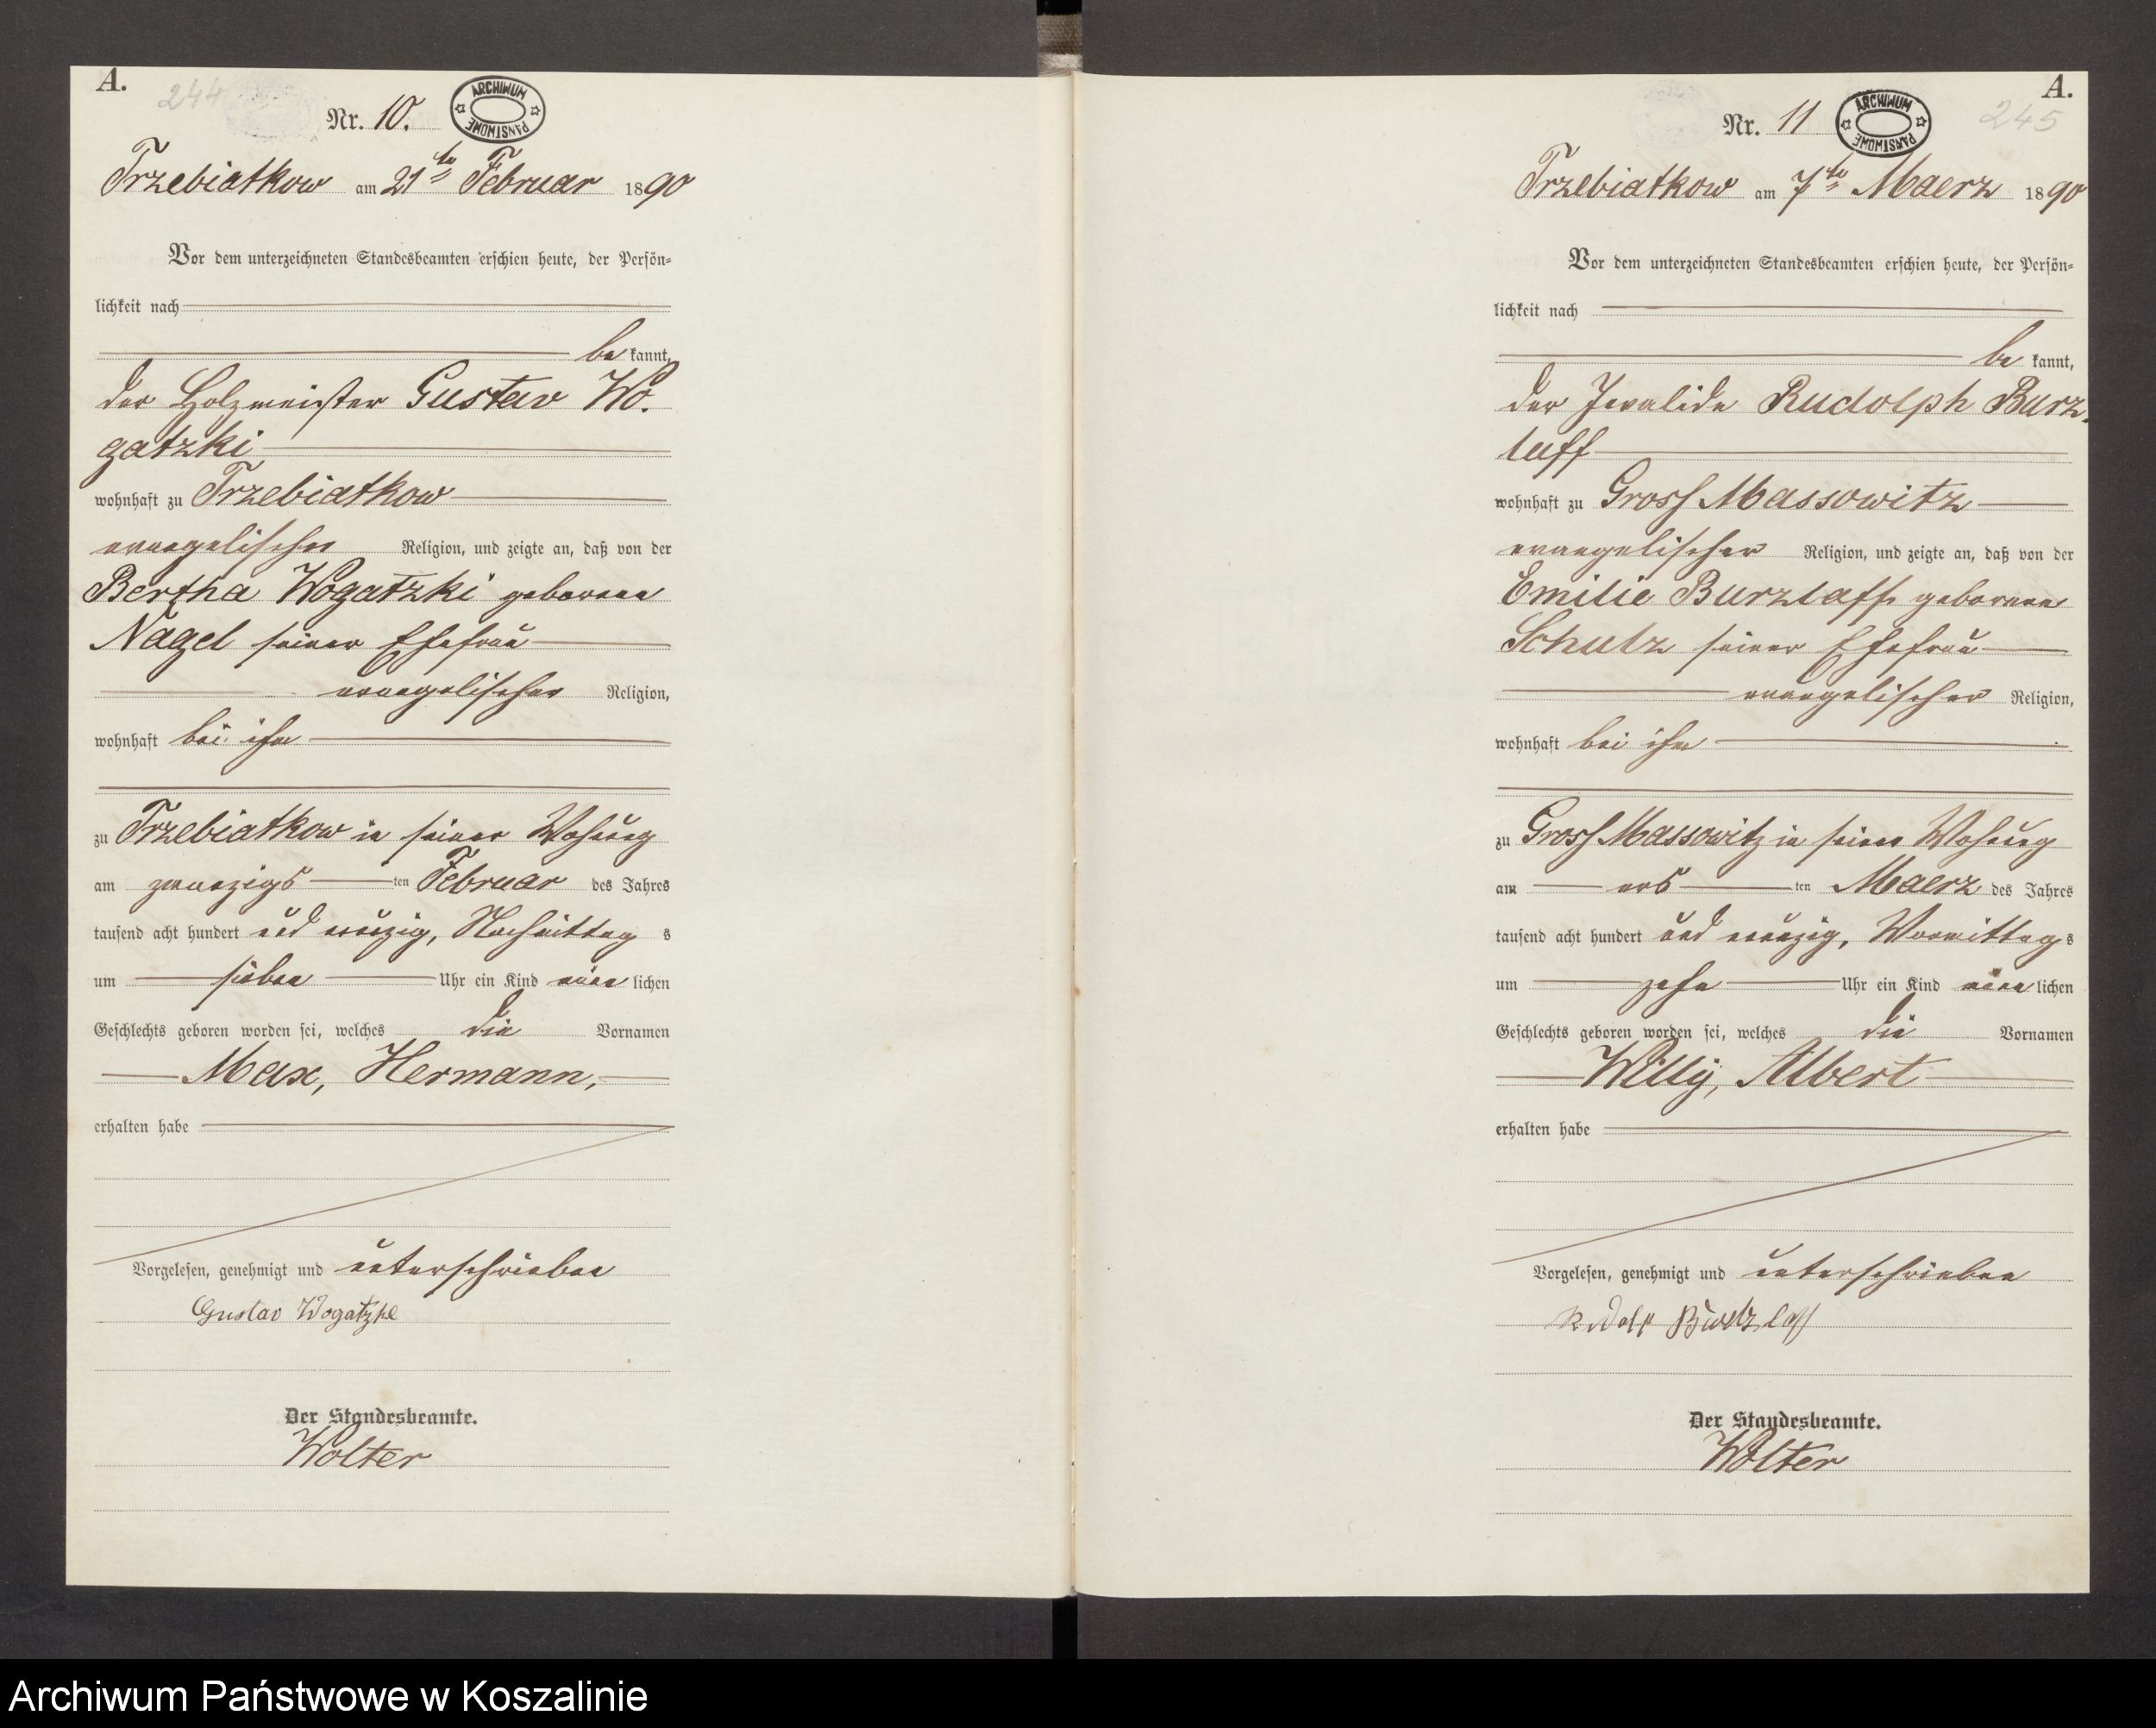 A.
244
Nr. 10.
ARCHIWUM PAŃSTWOWE
Trzebiatkow am 21ten Februar 1890
Vor dem unterzeichneten Standesbeamten erschien heute, der Persön-
lichkeit nach
be kannt,
der Holzmeister Gustav Wo-
gatzki
wohnhaft zu Trzebiatkow
evangelischer Religion, und zeigte an, daß von der
Bertha Wogatzki geborenen
Nagel seiner Ehefrau
evangelischer Religion,
wohnhaft bei ihm
zu Trzebiatkow in seiner Wohnung
am zwanzigsten Februar des Jahres
tausend acht hundert und neunzig, Nachmittags
um sieben Uhr ein Kind männlichen
Geschlechts geboren worden sei, welches die Vornamen
Max, Hermann,
erhalten habe
Vorgelesen, genehmigt und unterschrieben
Gustav Wogatzke
Der Standesbeamte.
Wolter
A.
245
Nr. 11
ARCHIWUM PAŃSTWOWE
Trzebiatkow am 7ten Maerz 1890
Vor dem unterzeichneten Standesbeamten erschien heute, der Persön-
lichkeit nach
be kannt,
der Invalide Rudolph Burz-
laff
wohnhaft zu Gross Massowitz
evangelischer Religion, und zeigte an, daß von der
Emilie Burzlaff geborenen
Schulz seiner Ehefrau
evangelischer Religion,
wohnhaft bei ihm
zu Gross Massowitz in seiner Wohnung
am ersten Maerz des Jahres
tausend acht hundert und neunzig, Vormittags
um zehn Uhr ein Kind männlichen
Geschlechts geboren worden sei, welches die Vornamen
Willy, Albert
erhalten habe
Vorgelesen, genehmigt und unterschrieben
Rudolf Burzlaff
Der Standesbeamte.
Wolter
Archiwum Państwowe w Koszalinie